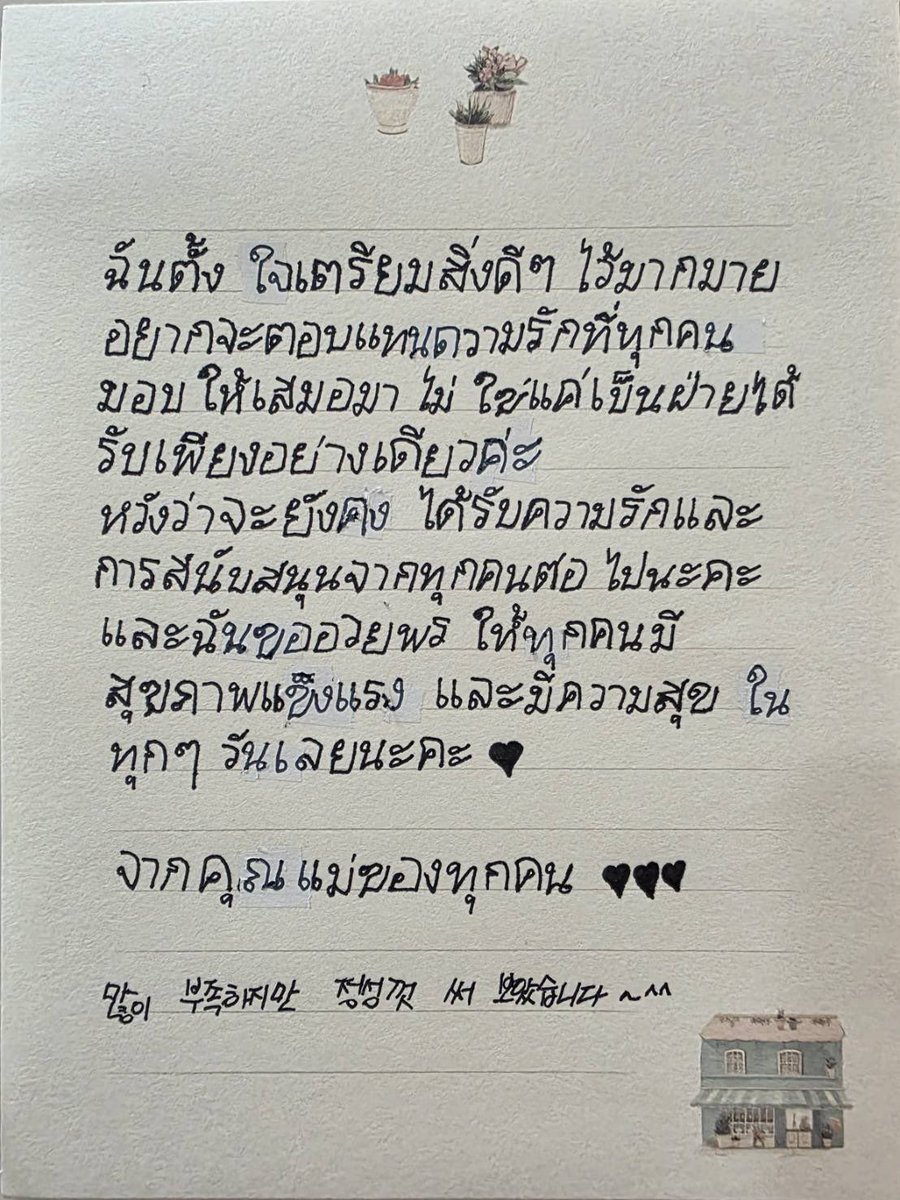 ฉันตั้ง ใจเตรียมสิ่งดีๆ ไว้มากมาย
อยากจะตอบแทนความรักที่ทุกคน
มอบ ให้เสมอมา ไม่ ใช่แค่เป็นฝ่ายได้
รับเพียงอย่างเดียวค่ะ
หวังว่าจะยังคง ได้รับความรักและ
การสนับสนุนจากทุกคนต่อ ไปนะคะ
และฉันขออวยพร ให้ทุกคนมี
สุขภาพแข็งแรง และมีความสุข ใน
ทุกๆ วันเลยนะคะ ♥
จากคุณแม่ของทุกคน ♥♥♥
많이 부족하지만 정성껏 써 보았습니다~^^